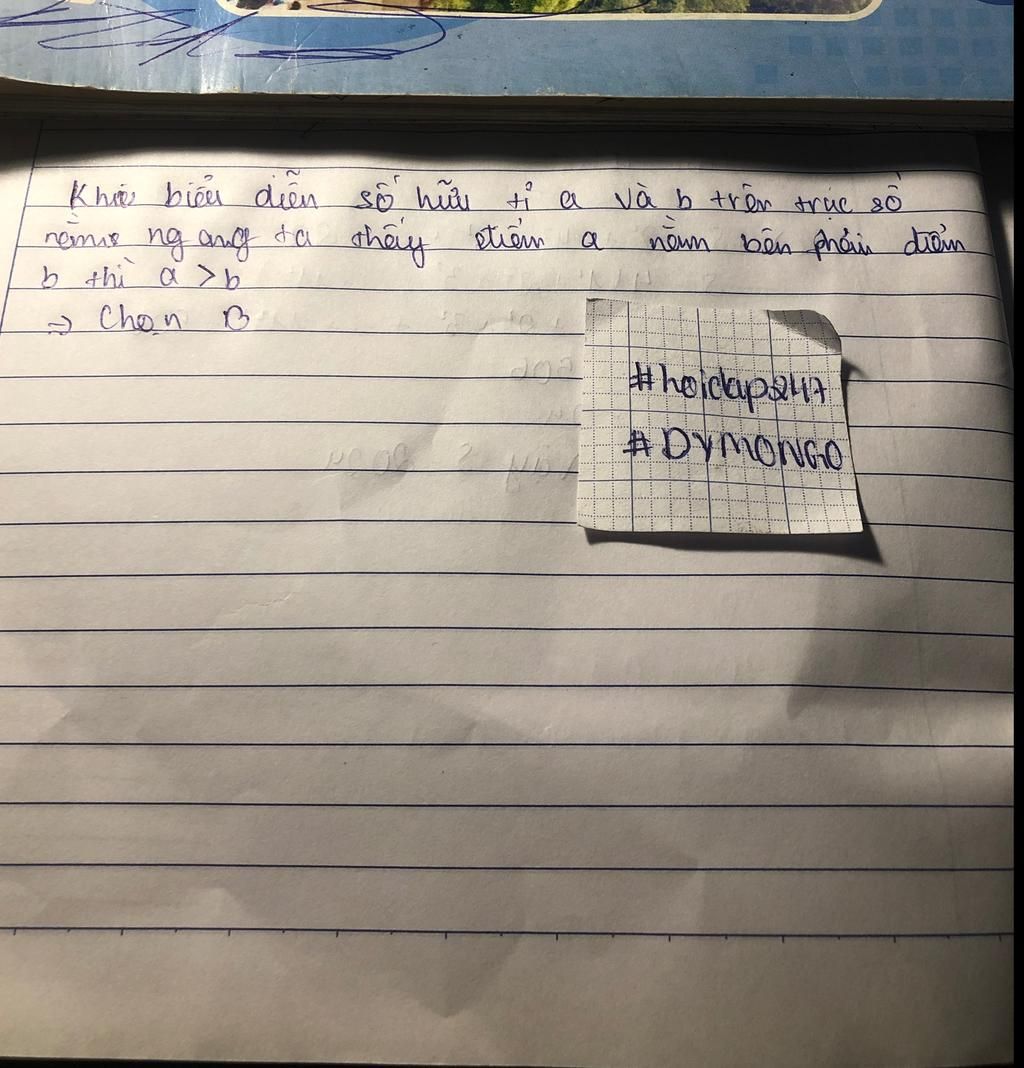 Khi biểu diễn số hữu tỉ a và b trên trục số
nằm ngang ta thấy điểm a nằm bên phải điểm
b thì a > b
=> Chọn B
#hoidap247
#DYMONGO